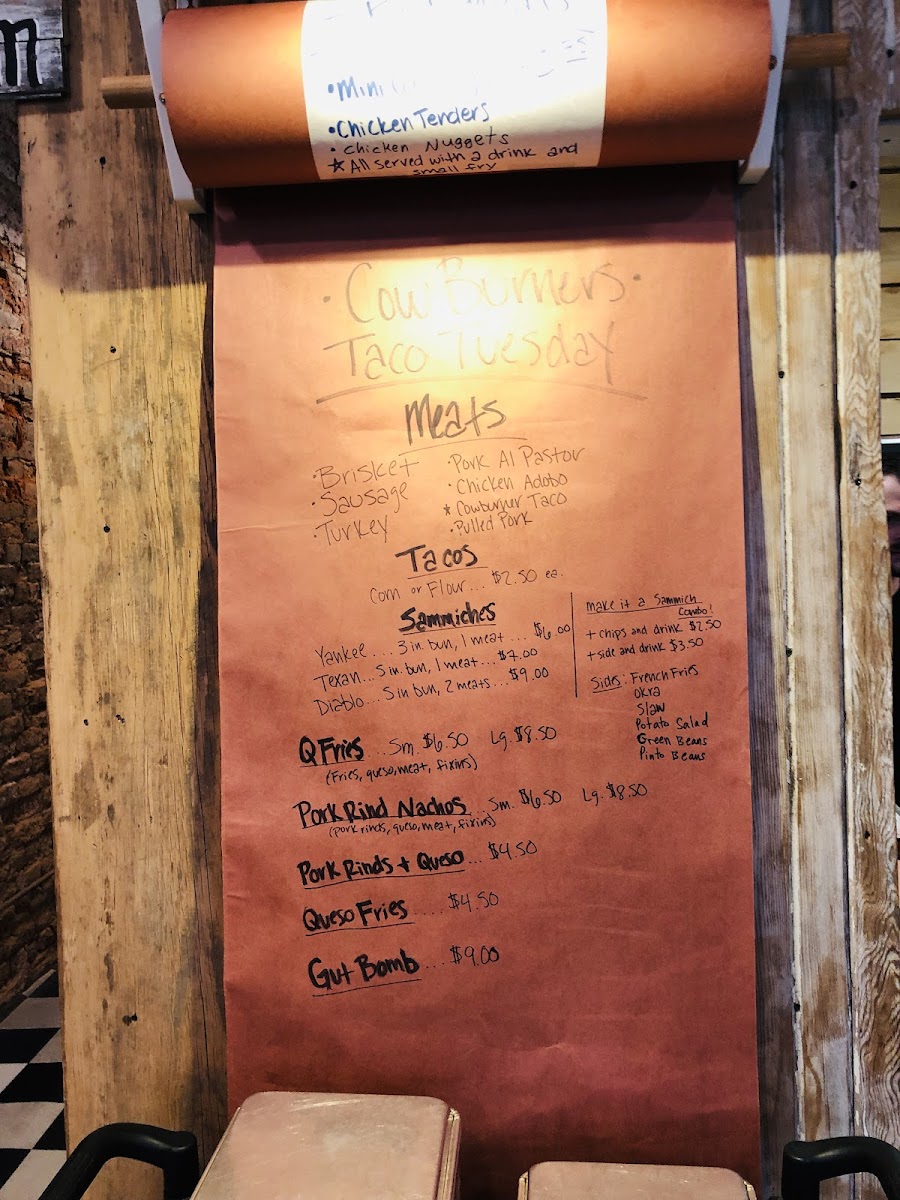 m
• Mini
• Chicken Tenders
• Chicken Nuggets
★ All served with a drink and
small fry
• Cow Burners •
Taco Tuesday
Meats
• Brisket
• Sausage
• Turkey
• Pork Al Pastor
• Chicken Adobo
* Cowburner Taco
• Pulled Pork
Tacos
Corn or Flour... $2.50 ea.
Sammiches
Yankee.... 3 in. bun, 1 meat.... $6.00
Texan... 5 in. bun, 1 meat... $7.00
Diablo... 5 in bun, 2 meats... $9.00
make it a Sammich
Combo!
+ chips and drink $2.50
+ side and drink $3.50
Sides: French Fries
Okra
Slaw
Potato Salad
Green Beans
Pinto Beans
Q Fries ...Sm. $6.50 Lg. $8.50
(Fries, queso, meat, fixins)
Pork Rind Nachos...Sm. $6.50 Lg. $8.50
(pork rinds, queso, meat, fixins)
Pork Rinds + Queso... $4.50
Queso Fries.... $4.50
Gut Bomb... $9.00